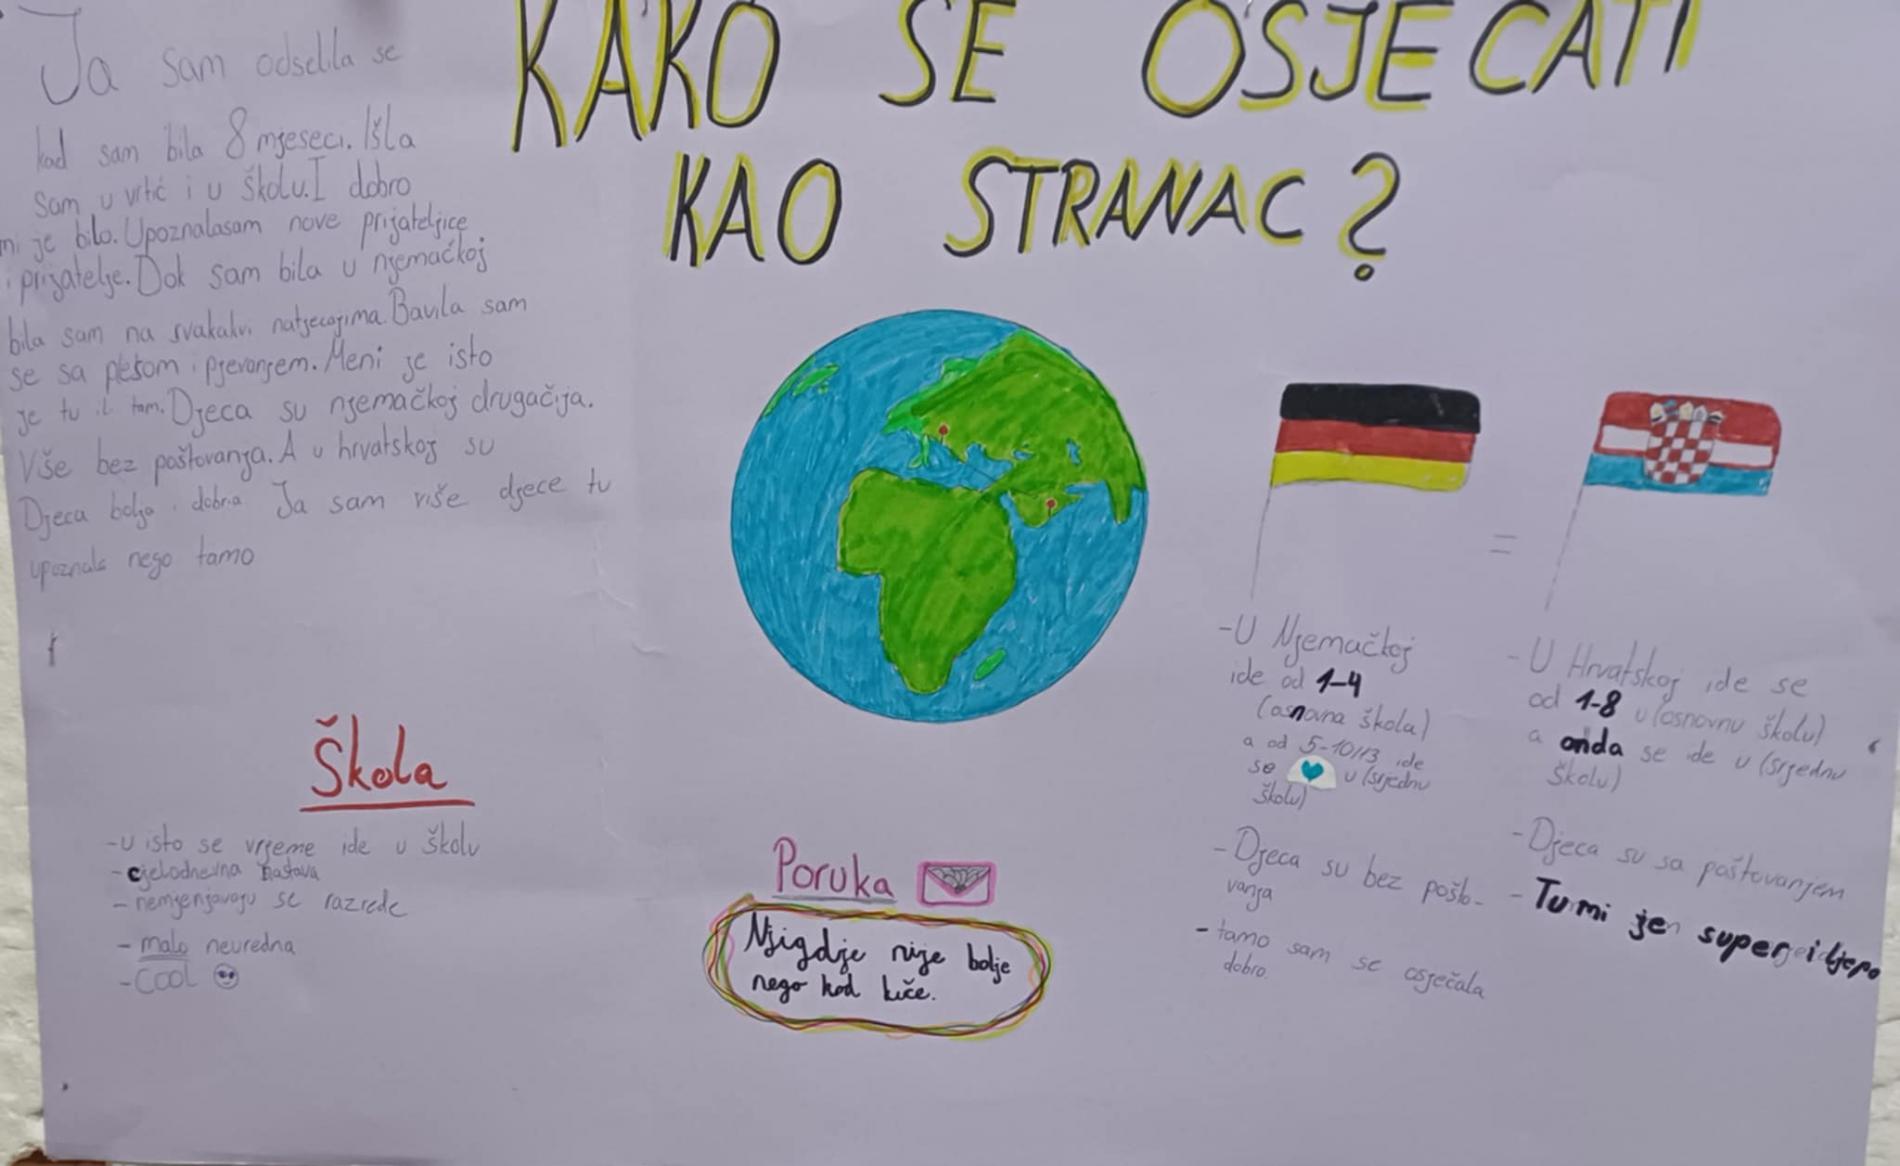 KAKO SE OSJEĆATI
KAO STRANAC?
Ja sam odselila se
kad sam bila 8 mjeseci. Išla
sam u vrtić i u školu. I dobro
mi je bilo. Upoznalasam nove prijateljice
i prijatelje. Dok sam bila u njemačkoj
bila sam na svakakvi natjecajima. Bavila sam
se sa plesom i pjevanjem. Meni je isto
je tu il tam. Djeca su njemačkoj drugačija.
Više bez poštovanja. A u hrvatskoj su
Djeca bolja i dobra Ja sam više djece tu
upoznala nego tamo
Škola
-U isto se vrjeme ide u školu
-cjelodnevna nastava
-nemjenjavaju se razrede
-malo neuredna
-Cool
Poruka
Njigdje nije bolje
nego kod kuče.
=
-U Njemačkoj
ide od 1-4
(osnovna škola)
a od 5-10/13 ide
se u (srjednu
školu)
-Djeca su bez pošto-
vanja
-tamo sam se osječala
dobro.
-U Hrvatskoj ide se
od 1-8 u (osnovnu školu)
a onda se ide u (srjednu
školu)
-Djeca su sa poštovanjem
-Tu mi je super i ljepo